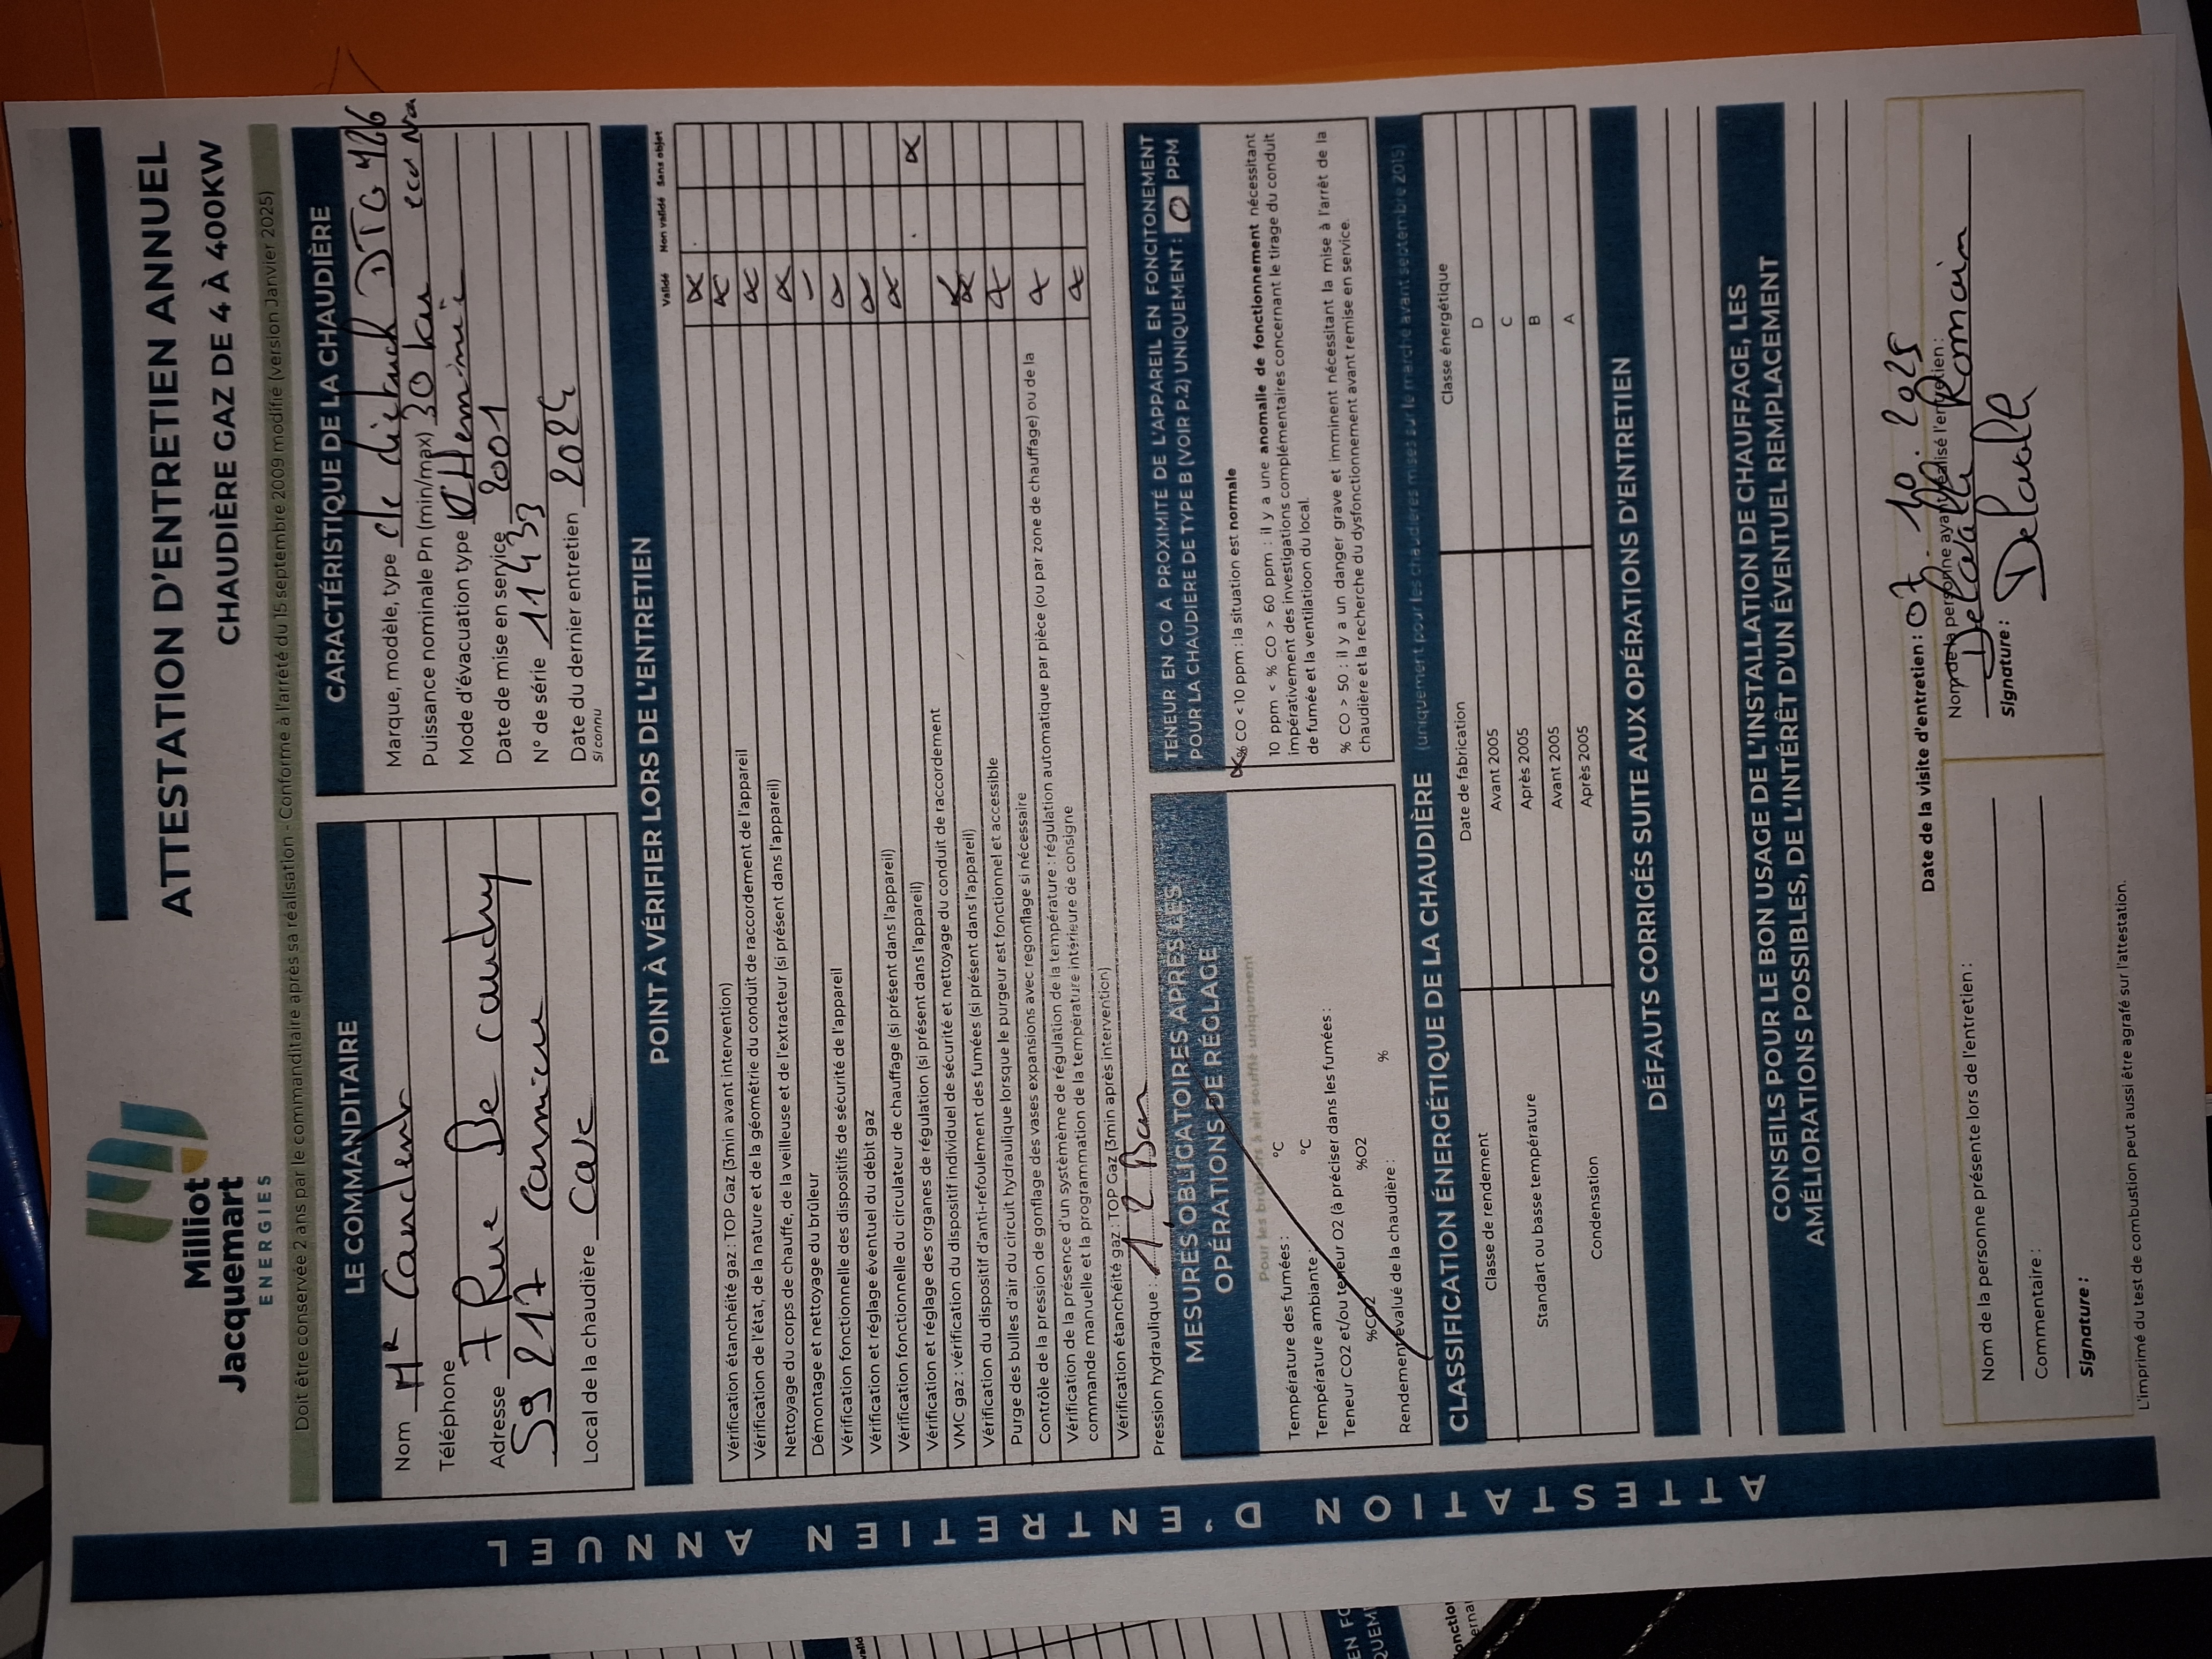 Milliot
Jacquemart
ENERGIES
ATTESTATION D'ENTRETIEN ANNUEL
CHAUDIÈRE GAZ DE 4 À 400KW
Doit être conservée 2 ans par le commanditaire après sa réalisation - Conforme à l'arrêté du 15 septembre 2009 modifié (version Janvier 2025)
LE COMMANDITAIRE
Nom Mr
Téléphone
Adresse 7 Rue De cauchy
59217 Carnieu
Local de la chaudière Cave
CARACTÉRISTIQUE DE LA CHAUDIÈRE
Marque, modèle, type de dietrich DTG
Puissance nominale Pn (min/max) 30 kw
Mode d'évacuation type
Date de mise en service 2001
N° de série 11433
Date du dernier entretien 2024
si connu
POINT À VÉRIFIER LORS DE L'ENTRETIEN
Validé Non validé Sans objet
Vérification étanchéité gaz : TOP Gaz (3min avant intervention)
Vérification de l'état, de la nature et de la géométrie du conduit de raccordement de l'appareil
Nettoyage du corps de chauffe, de la veilleuse et de l'extracteur (si présent dans l'appareil)
Démontage et nettoyage du brûleur
Vérification fonctionnelle des dispositifs de sécurité de l'appareil
Vérification et réglage éventuel du débit gaz
Vérification fonctionnelle du circulateur de chauffage (si présent dans l'appareil)
Vérification et réglage des organes de régulation (si présent dans l'appareil)
VMC gaz : vérification du dispositif individuel de sécurité et nettoyage du conduit de raccordement
Vérification du dispositif d'anti-refoulement des fumées (si présent dans l'appareil)
Purge des bulles d'air du circuit hydraulique lorsque le purgeur est fonctionnel et accessible
Contrôle de la pression de gonflage des vases expansions avec regonflage si nécessaire
Vérification de la présence d'un systèmème de régulation de la température : régulation automatique par pièce (ou par zone de chauffage) ou de la
commande manuelle et la programmation de la température intérieure de consigne
Vérification étanchéité gaz : TOP Gaz (3min après intervention)
Pression hydraulique : 1,2 Bar
MESURES OBLIGATOIRES APRÈS LES
OPÉRATIONS DE RÉGLAGE
Pour les brûleurs à air soufflé uniquement
Température des fumées : °C
Température ambiante : °C
Teneur CO2 et/ou teneur O2 (à préciser dans les fumées :
%CO2 %O2
Rendement évalué de la chaudière : %
TENEUR EN CO À PROXIMITÉ DE L'APPAREIL EN FONCITONEMENT
POUR LA CHAUDIÈRE DE TYPE B (VOIR P.2) UNIQUEMENT : 0 PPM
% CO < 10 ppm : la situation est normale
10 ppm < % CO > 60 ppm : il y a une anomalie de fonctionnement nécessitant
impérativement des investigations complémentaires concernant le tirage du conduit
de fumée et la ventilatioon du local.
% CO > 50 : il y a un danger grave et imminent nécessitant la mise à l'arrêt de la
chaudière et la recherche du dysfonctionnement avant remise en service.
CLASSIFICATION ÉNERGÉTIQUE DE LA CHAUDIÈRE (uniquement pour les chaudières mises sur le marché avant septembre 2015)
Classe de rendement Date de fabrication Classe énergétique
Standart ou basse température Avant 2005 D
Après 2005 C
Condensation Avant 2005 B
Après 2005 A
DÉFAUTS CORRIGÉS SUITE AUX OPÉRATIONS D'ENTRETIEN
CONSEILS POUR LE BON USAGE DE L'INSTALLATION DE CHAUFFAGE, LES
AMÉLIORATIONS POSSIBLES, DE L'INTÉRÊT D'UN ÉVENTUEL REMPLACEMENT
Date de la visite d'entretien : 07. 10. 2025
Nom de la personne présente lors de l'entretien :
Commentaire :
Signature :
Nom de la personne ayant réalisé l'entretien :
Delavalle Romain
Signature :
Delavalle
L'imprimé du test de combustion peut aussi être agrafé sur l'attestation.
ATTESTATION D'ENTRETIEN ANNUEL